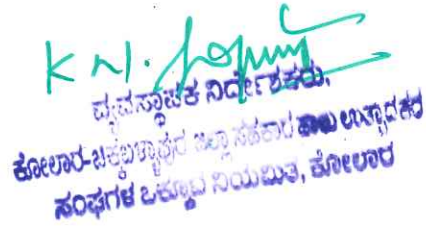 K N.
ವ್ಯವಸ್ಥಾಪಕ ನಿರ್ದೇಶಕರು,
ಕೋಲಾರ-ಚಿಕ್ಕಬಳ್ಳಾಪುರ ಜಿಲ್ಲಾ ಸಹಕಾರ ಹಾಲು ಉತ್ಪಾದಕರ
ಸಂಘಗಳ ಒಕ್ಕೂಟ ನಿಯಮಿತ, ಕೋಲಾರ